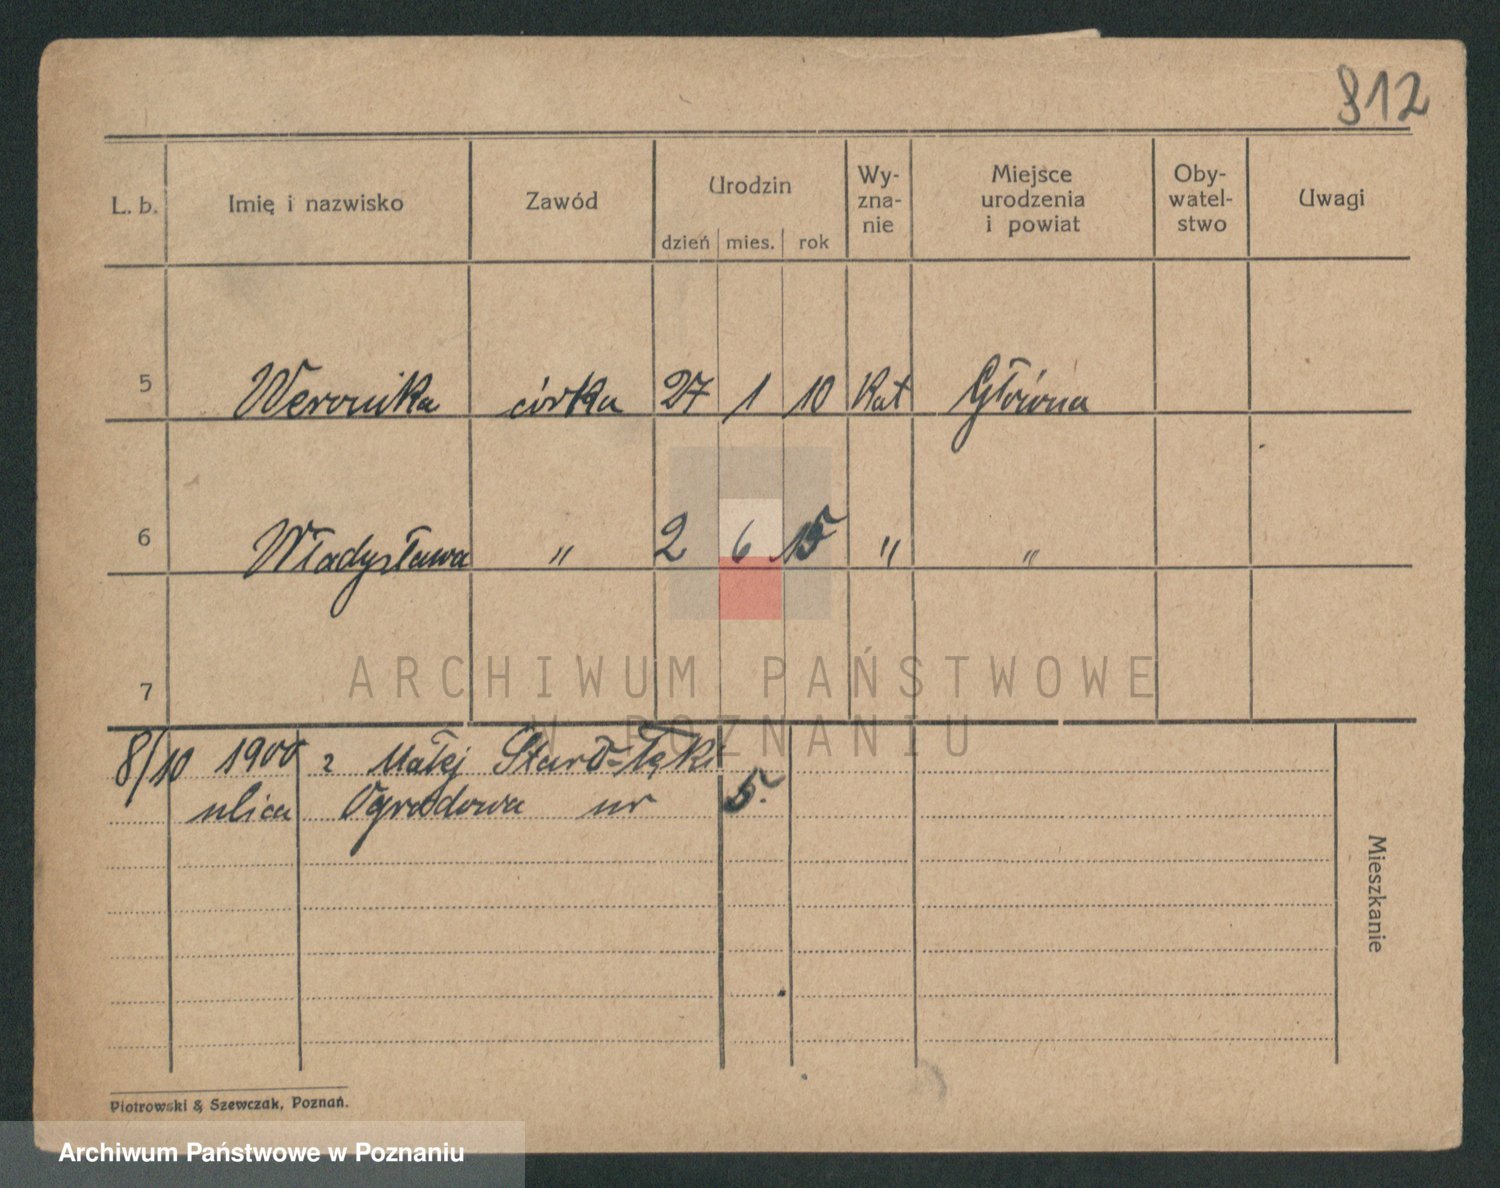 812
L. b. Imię i nazwisko Zawód Urodzin Wy-zna-nie Miejsce urodzenia i powiat Oby-watel-stwo Uwagi
dzień mies. rok
5 Weronika córka 27 1 10 Kat Główna
6 Władysława " 2 6 15 " "
7
ARCHIWUM PAŃSTWOWE
W POZNANIU
8/10 1900 z Małej Staro-łęki
ulica Ogrodowa nr 5.
Mieszkanie
Piotrowski & Szewczak, Poznań.
Archiwum Państwowe w Poznaniu